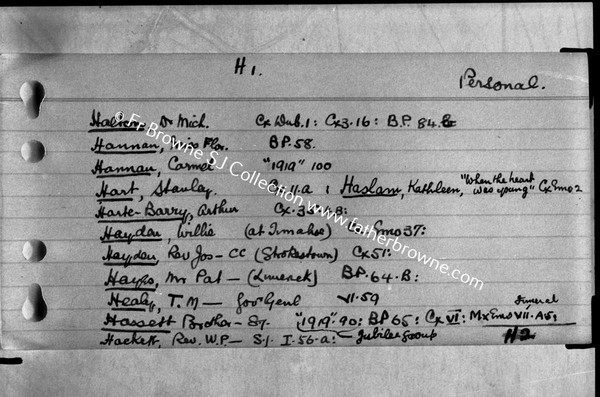 H1.
Personal.
Dr Mich. Cx Dub. 1: Cx3.16: B.P. 84.
Hannan, Miss Flor. BP.58.
Hannan, Carmel "1919" 100
Hart, Stanley. 11.a : Haslam, Kathleen, "When the heart was young" Cx Emo 2
Harte-Barry, Arthur Cx.3
Haydon, Willie (at Timahoe) Emo 37:
Hayden, Rev Jos- CC (Strokestown) Cx51.
Hayes, Mr Pat - (Limerick) BP.64.B:
Healy, T.M - Gov Genl VI.59
Hassett Brother - SJ. "1919".90: BP65: Cx VI: MxEmo VII.A5, funeral
Hackett, Rev. W.P - S.J. I.56.a: Jubilee Group H2
© Fr Browne SJ Collection www.fatherbrowne.com